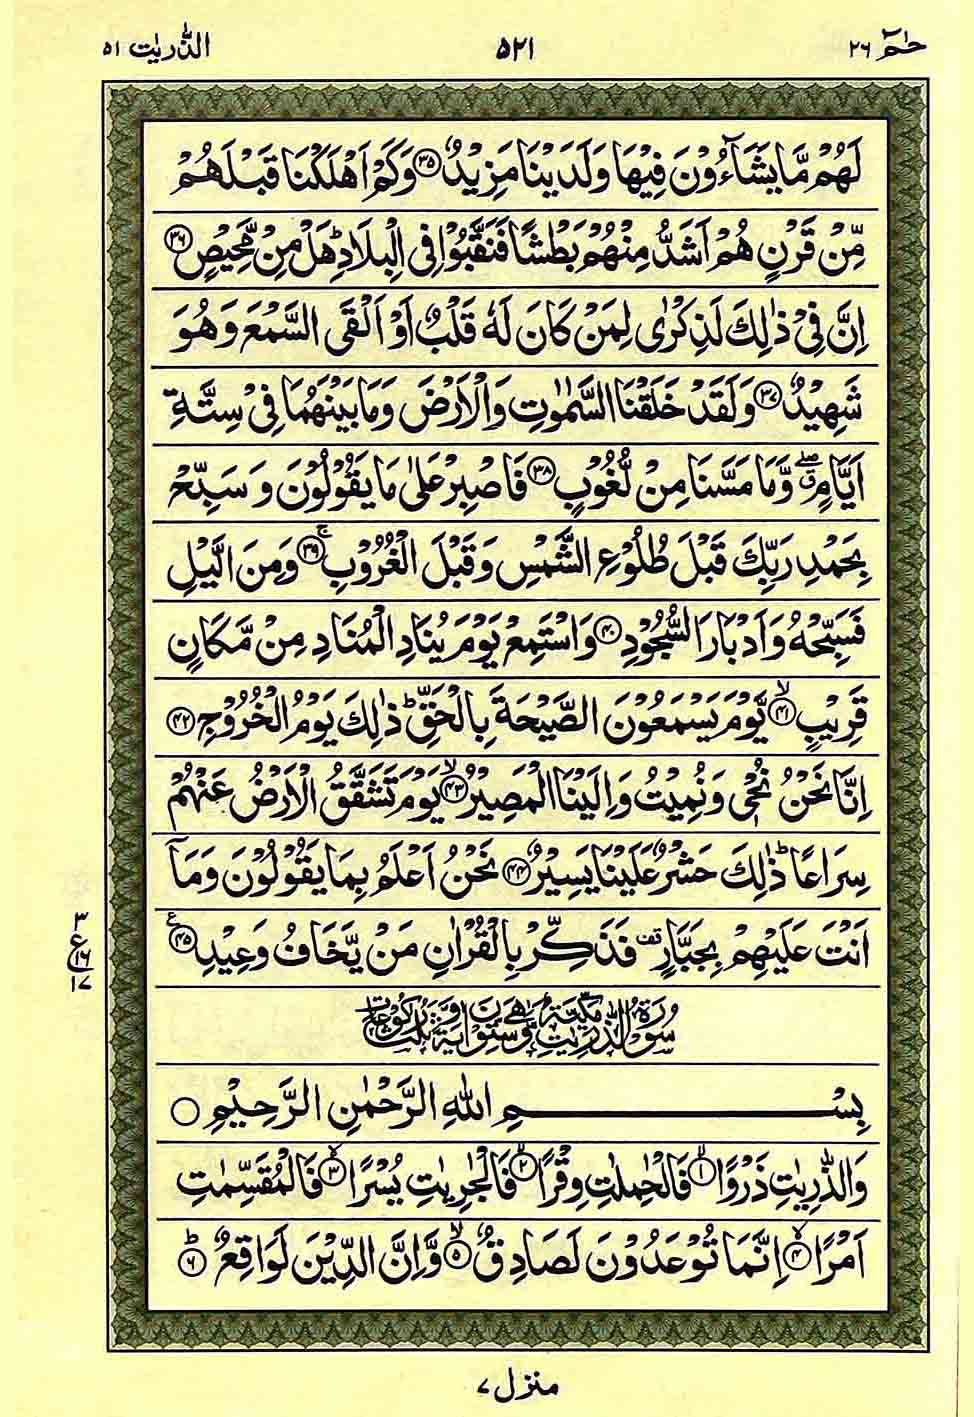 حٰمٓ ٢٦ ٥٢١ الذّٰریٰت ٥١
لَهُمْ مَّا یَشَآءُوْنَ فِیْهَا وَلَدَیْنَا مَزِیْدٌ ۝٣٥ وَكَمْ اَهْلَكْنَا قَبْلَهُمْ
مِّنْ قَرْنٍ هُمْ اَشَدُّ مِنْهُمْ بَطْشًا فَنَقَّبُوْا فِی الْبِلَادِ ؕ هَلْ مِنْ مَّحِیْصٍ ۝٣٦
اِنَّ فِیْ ذٰلِكَ لَذِكْرٰی لِمَنْ كَانَ لَهٗ قَلْبٌ اَوْ اَلْقَی السَّمْعَ وَهُوَ
شَهِیْدٌ ۝٣٧ وَلَقَدْ خَلَقْنَا السَّمٰوٰتِ وَالْاَرْضَ وَمَا بَیْنَهُمَا فِیْ سِتَّةِ
اَیَّامٍ ۖۗ وَّمَا مَسَّنَا مِنْ لُّغُوْبٍ ۝٣٨ فَاصْبِرْ عَلٰی مَا یَقُوْلُوْنَ وَسَبِّحْ
بِحَمْدِ رَبِّكَ قَبْلَ طُلُوْعِ الشَّمْسِ وَقَبْلَ الْغُرُوْبِ ۝٣٩ۚ وَمِنَ الَّیْلِ
فَسَبِّحْهُ وَاَدْبَارَ السُّجُوْدِ ۝٤٠ وَاسْتَمِعْ یَوْمَ یُنَادِ الْمُنَادِ مِنْ مَّكَانٍ
قَرِیْبٍ ۝٤١ۙ یَّوْمَ یَسْمَعُوْنَ الصَّیْحَةَ بِالْحَقِّ ؕ ذٰلِكَ یَوْمُ الْخُرُوْجِ ۝٤٢
اِنَّا نَحْنُ نُحْیٖ وَنُمِیْتُ وَاِلَیْنَا الْمَصِیْرُ ۝٤٣ۙ یَوْمَ تَشَقَّقُ الْاَرْضُ عَنْهُمْ
سِرَاعًا ؕ ذٰلِكَ حَشْرٌ عَلَیْنَا یَسِیْرٌ ۝٤٤ نَحْنُ اَعْلَمُ بِمَا یَقُوْلُوْنَ وَمَاۤ
اَنْتَ عَلَیْهِمْ بِجَبَّارٍ قف فَذَكِّرْ بِالْقُرْاٰنِ مَنْ یَّخَافُ وَعِیْدِ ۝٤٥ع
٣
ع
١٦
١٧
سُوْرَةُ الذّٰرِیٰتِ مَكِّیَّةٌ وَّهِیَ سِتُّوْنَ اٰیَةً وَّثَلٰثُ رُكُوْعَاتٍ
بِسْمِ اللّٰهِ الرَّحْمٰنِ الرَّحِیْمِ ۝
وَالذّٰرِیٰتِ ذَرْوًا ۝١ۙ فَالْحٰمِلٰتِ وِقْرًا ۝٢ۙ فَالْجٰرِیٰتِ یُسْرًا ۝٣ۙ فَالْمُقَسِّمٰتِ
اَمْرًا ۝٤ۙ اِنَّمَا تُوْعَدُوْنَ لَصَادِقٌ ۝٥ۙ وَّاِنَّ الدِّیْنَ لَوَاقِعٌ ۝٦ؕ
منزل ٧